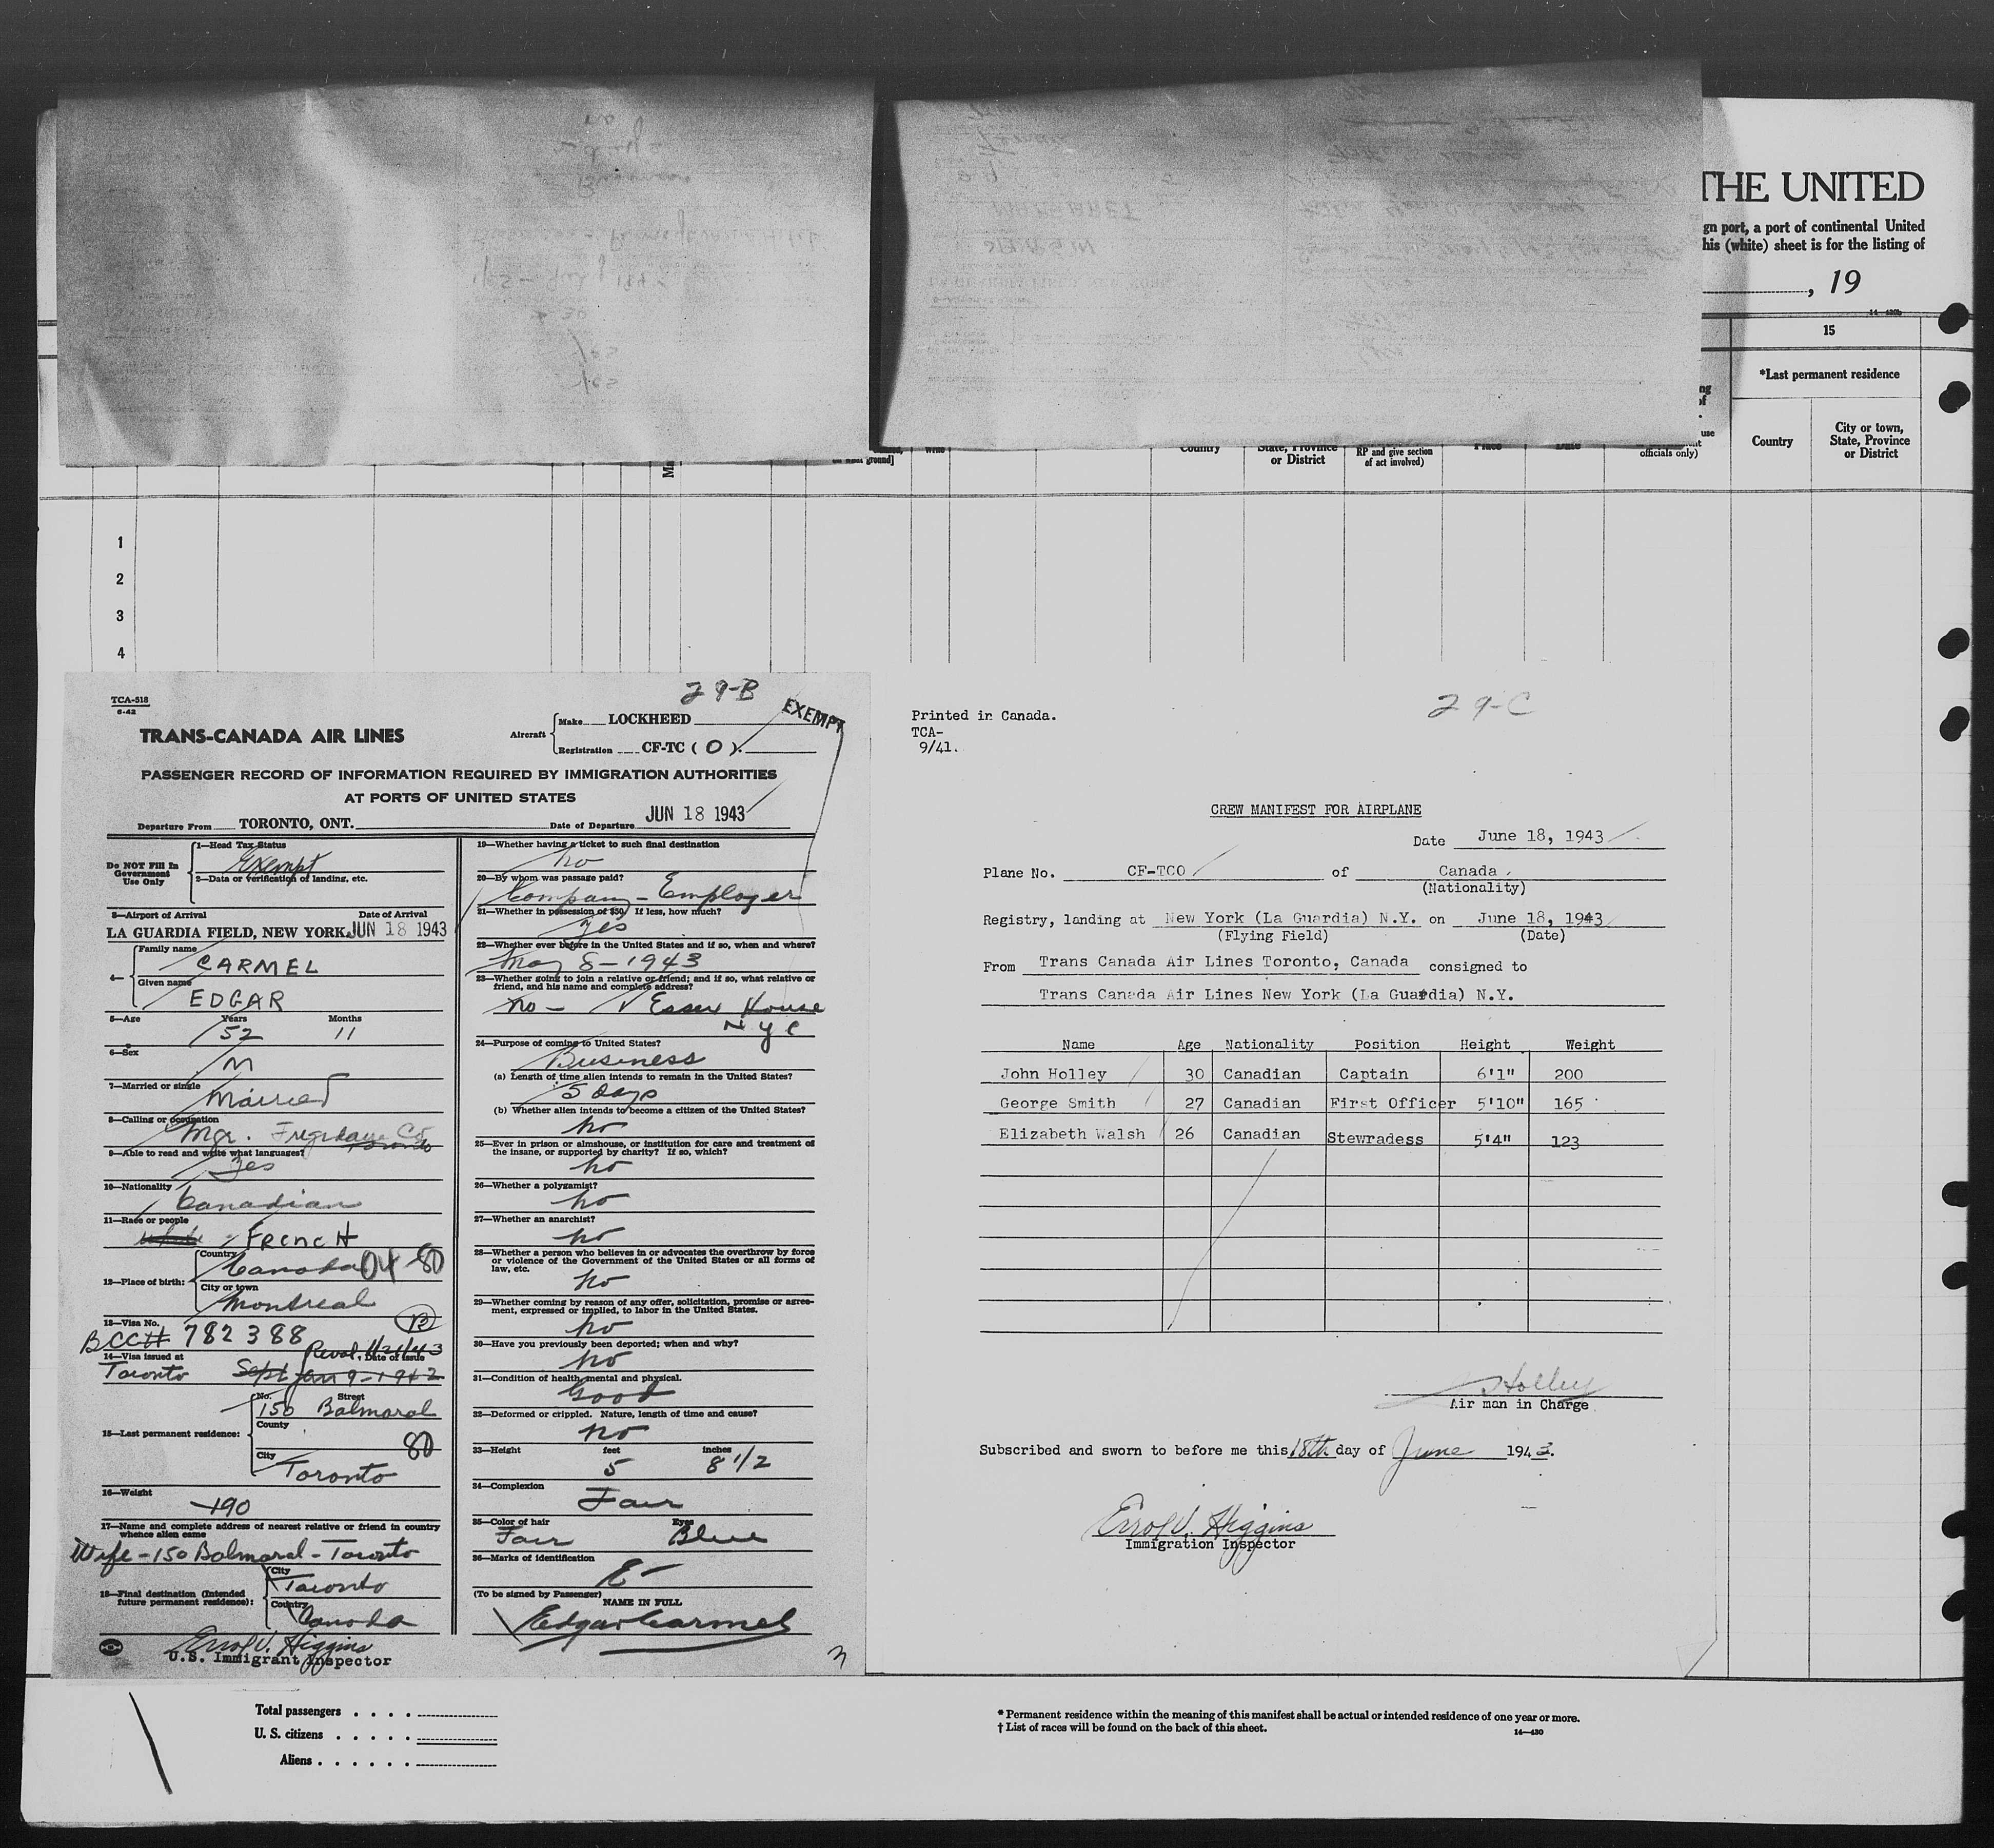 THE UNITED
gn port, a port of continental United
his (white) sheet is for the listing of
, 19
14—430b
15
*Last permanent residence
Country
City or town,
State, Province
or District
Country
State, Province
or District
RP and give section
of act involved)
Place
Date
officials only)
1
2
3
4
29-B
TCA-518
6-42
EXEMPT
TRANS-CANADA AIR LINES
Aircraft
Make LOCKHEED
Registration CF-TC ( O ).
PASSENGER RECORD OF INFORMATION REQUIRED BY IMMIGRATION AUTHORITIES
AT PORTS OF UNITED STATES
Departure From TORONTO, ONT. Date of Departure JUN 18 1943
Do NOT Fill In
Government
Use Only
1—Head Tax Status
Exempt
2—Data or verification of landing, etc.
3—Airport of Arrival Date of Arrival
LA GUARDIA FIELD, NEW YORK JUN 18 1943
4—
Family name
CARMEL
Given name
EDGAR
5—Age Years Months
52 11
6—Sex
M
7—Married or single
Married
8—Calling or occupation
Mgr. Frigidaire Co
Toronto
9—Able to read and write what languages?
Yes
10—Nationality
Canadian
11—Race or people
white FRENCH
12—Place of birth:
Country
Canada 04-80
City or town
Montreal
13—Visa No.
B
BCC# 782388
14—Visa issued at Date of Issue
Toronto Sept Jan 9-1942
15—Last permanent residence:
No. Street
150 Balmoral
County
80
City
Toronto
16—Weight
190
17—Name and complete address of nearest relative or friend in country
whence alien came
Wife-150 Balmoral-Toronto
18—Final destination (Intended
future permanent residence):
City
Toronto
Country
Canada
Errol V. Higgins
U.S. Immigrant Inspector
19—Whether having a ticket to such final destination
No
20—By whom was passage paid?
Company-Employer
21—Whether in possession of $50 If less, how much?
Yes
22—Whether ever before in the United States and if so, when and where?
May 8-1943
23—Whether going to join a relative or friend; and if so, what relative or
friend, and his name and complete address?
No- Essex House
N Y C
24—Purpose of coming to United States?
Business
(a) Length of time alien intends to remain in the United States?
5 days
(b) Whether alien intends to become a citizen of the United States?
No
25—Ever in prison or almshouse, or institution for care and treatment of
the insane, or supported by charity? If so, which?
No
26—Whether a polygamist?
No
27—Whether an anarchist?
No
28—Whether a person who believes in or advocates the overthrow by force
or violence of the Government of the United States or all forms of
law, etc.
No
29—Whether coming by reason of any offer, solicitation, promise or agree-
ment, expressed or implied, to labor in the United States.
No
30—Have you previously been deported; when and why?
No
31—Condition of health, mental and physical.
Good
32—Deformed or crippled. Nature, length of time and cause?
No
33—Height feet inches
5 8 1/2
34—Complexion
Fair
35—Color of hair Eyes
Fair Blue
36—Marks of identification
(To be signed by Passenger)
NAME IN FULL
Edgar Carmel
29-C
Printed in Canada.
TCA-
9/41.
CREW MANIFEST FOR AIRPLANE
Date June 18, 1943
Plane No. CF-TCO of Canada
(Nationality)
Registry, landing at New York (La Guardia) N.Y. on June 18, 1943
(Flying Field) (Date)
From Trans Canada Air Lines Toronto, Canada consigned to
Trans Canada Air Lines New York (La Guardia) N.Y.
Name Age Nationality Position Height Weight
John Holley 30 Canadian Captain 6'1" 200
George Smith 27 Canadian First Officer 5'10" 165
Elizabeth Walsh 26 Canadian Stewradess 5'4" 123
Holley
Air man in Charge
Subscribed and sworn to before me this 18th day of June 1943.
Errol V. Higgins
Immigration Inspector
Total passengers . . . .
U. S. citizens . . . . .
Aliens . . . . . .
* Permanent residence within the meaning of this manifest shall be actual or intended residence of one year or more.
† List of races will be found on the back of this sheet.
14—430